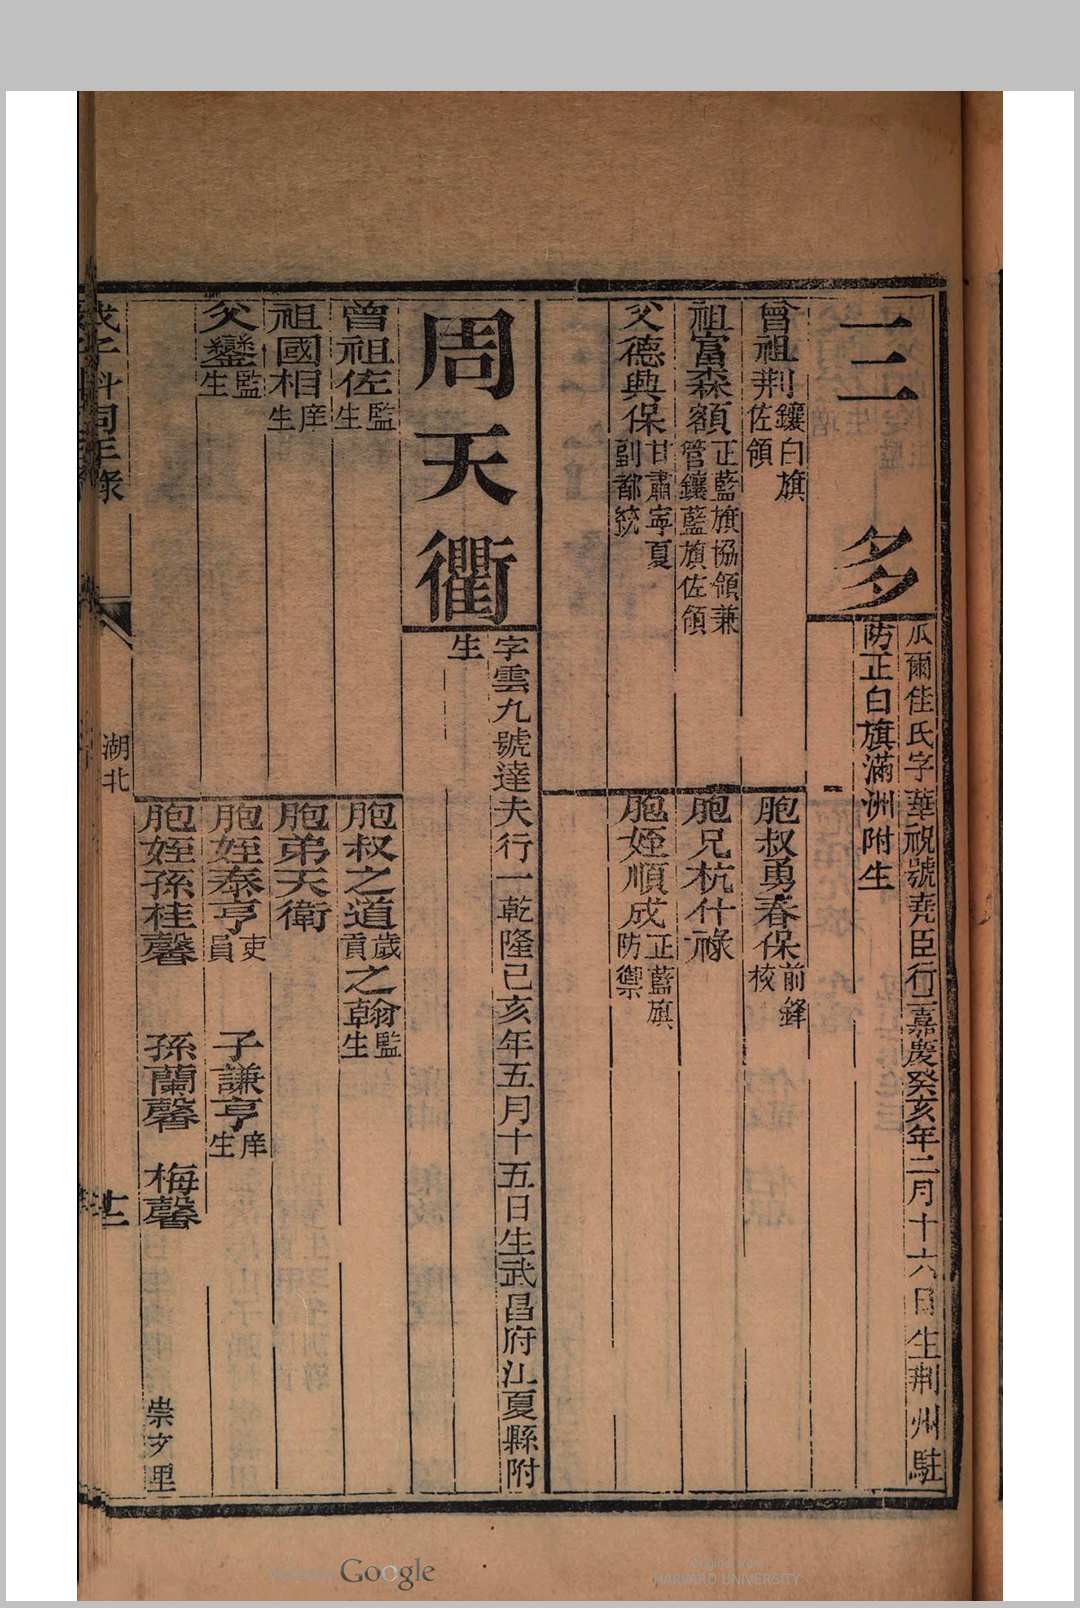 三多
瓜爾佳氏字華祝號堯臣行三嘉慶癸亥年二月十六日生荆州駐
防正白旗滿洲附生
曾祖荆鑲白旗佐領
祖富森額正藍旗協領兼管鑲藍旗佐領
父德興保甘肅寧夏副都統
胞叔勇春保前鋒校
胞兄杭什祿
胞姪順成正藍旗防禦
周天衢
字雲九號達夫行一乾隆己亥年五月十五日生武昌府江夏縣附
生
曾祖佐監生
祖國相庠生
父鑾監生
胞叔之道歲貢之翰監生
胞弟天衛
胞姪泰亨吏員 子謙亨庠生
胞姪孫桂馨 孫蘭馨 梅馨
崇文里
戊子科同年錄
湖北
Google
HARVARD UNIVERSITY